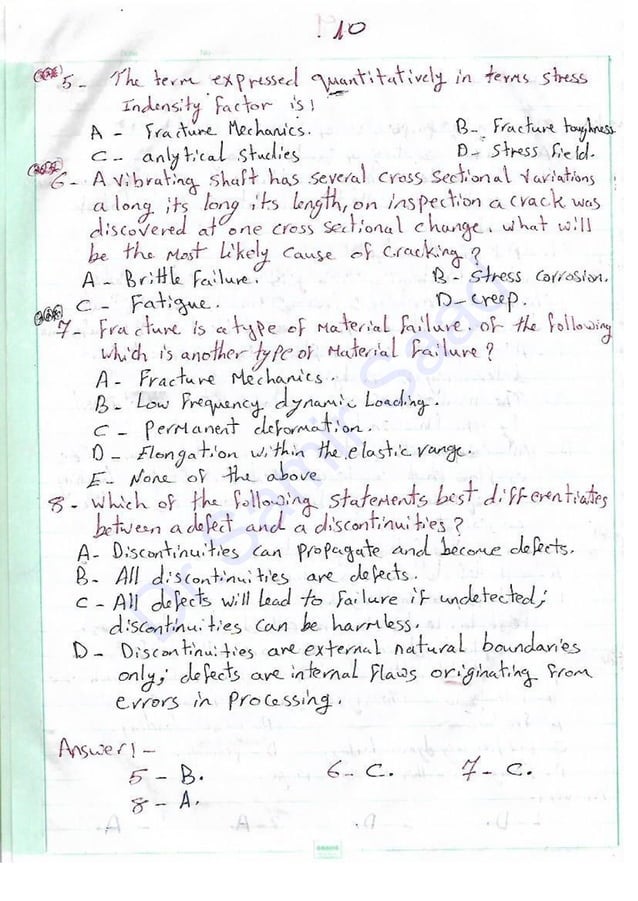 10
5- The term expressed quantitatively in terms stress
Indensity factor is!
A - Fracture Mechanics. B-. Fracture toughness
C - anlytical studies D- Stress field.
6- A vibrating shaft has several cross sectional variations
a long its long its length, on inspection a crack was
discovered at one cross sectional change. what will
be the Most Likely cause of cracking?
A - Brittle failure. B- stress corrosion.
C - Fatigue. D- creep.
7- Fracture is a type of Material failure. of the following
which is another type of Material failure?
A- Fracture Mechanics.
B- Low Frequency dynamic Loading.
C - permanent deformation.
D - Elongation within the elastic range.
E- None of the above
8 - which of the following statements best differentiates
between a defect and a discontinuities?
A- Discontinuities can propagate and become defects.
B- All discontinuities are defects.
C - All defects will lead to failure if undetected;
discontinuities can be harmless.
D - Discontinuities are external natural boundaries
only; defects are internal flaws originating from
errors in processing.
Answer! -
5 - B. 6- C. 7- C.
8 - A.
Dr Samir Saad